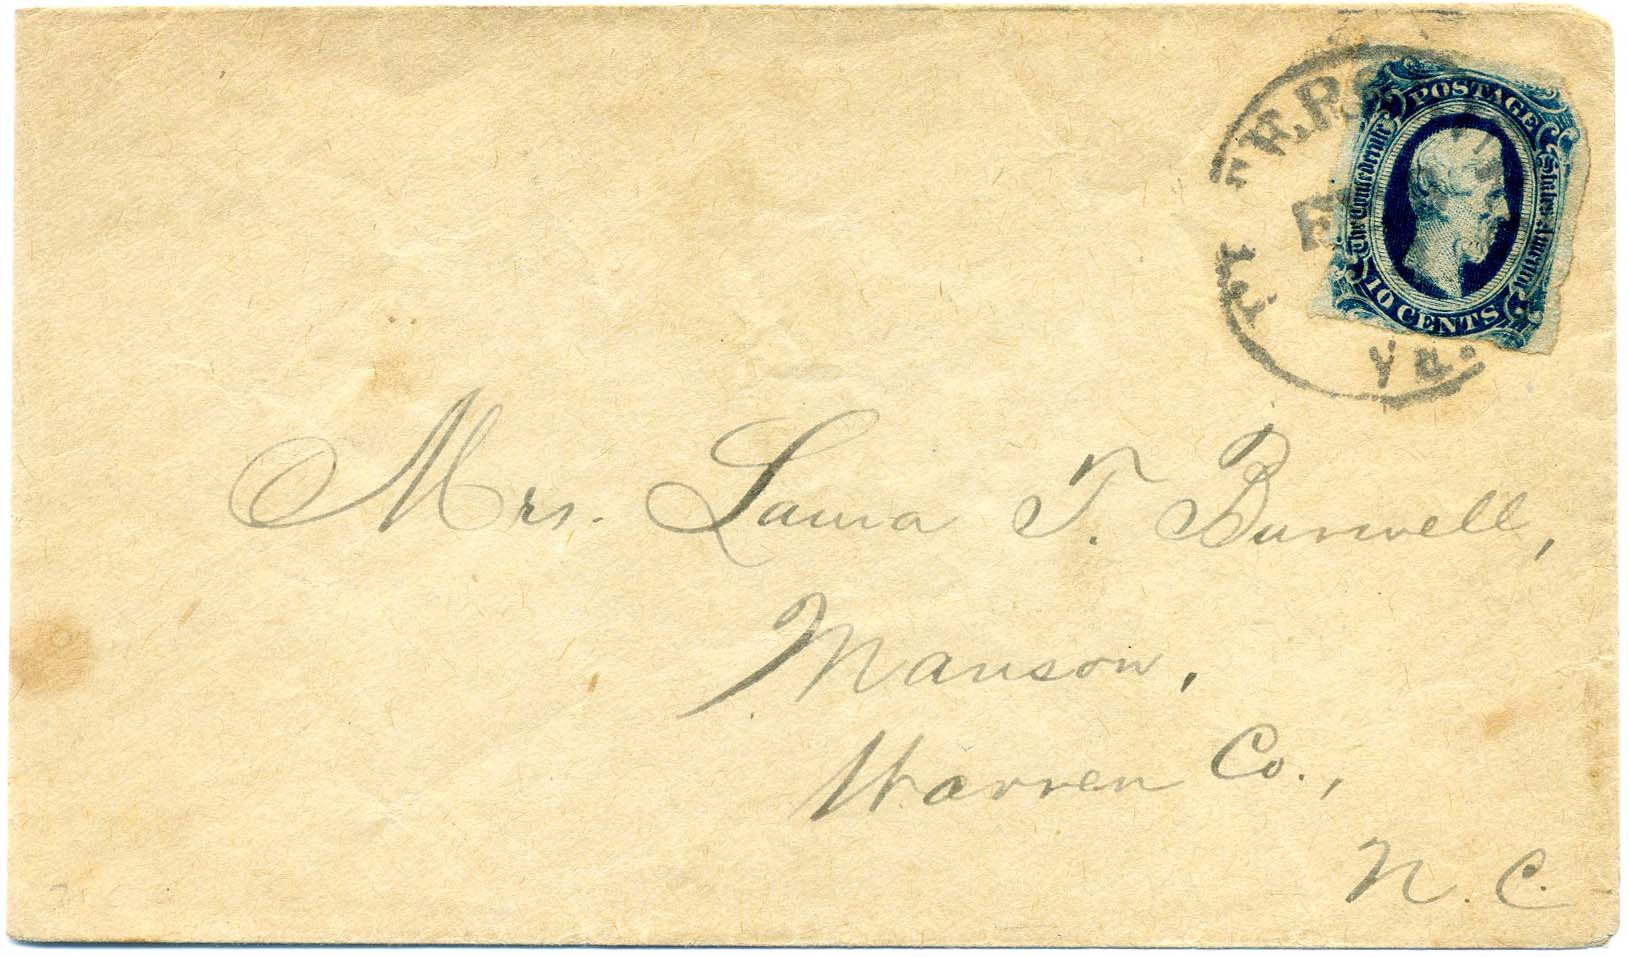 POSTAGE
The Confederate States America
10 CENTS
Va.
Mrs. Laura T. Burwell,
Manson,
Warren Co.,
N. C.